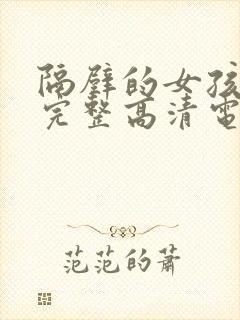 隔壁的女孩
完整高清電
范范的蕭